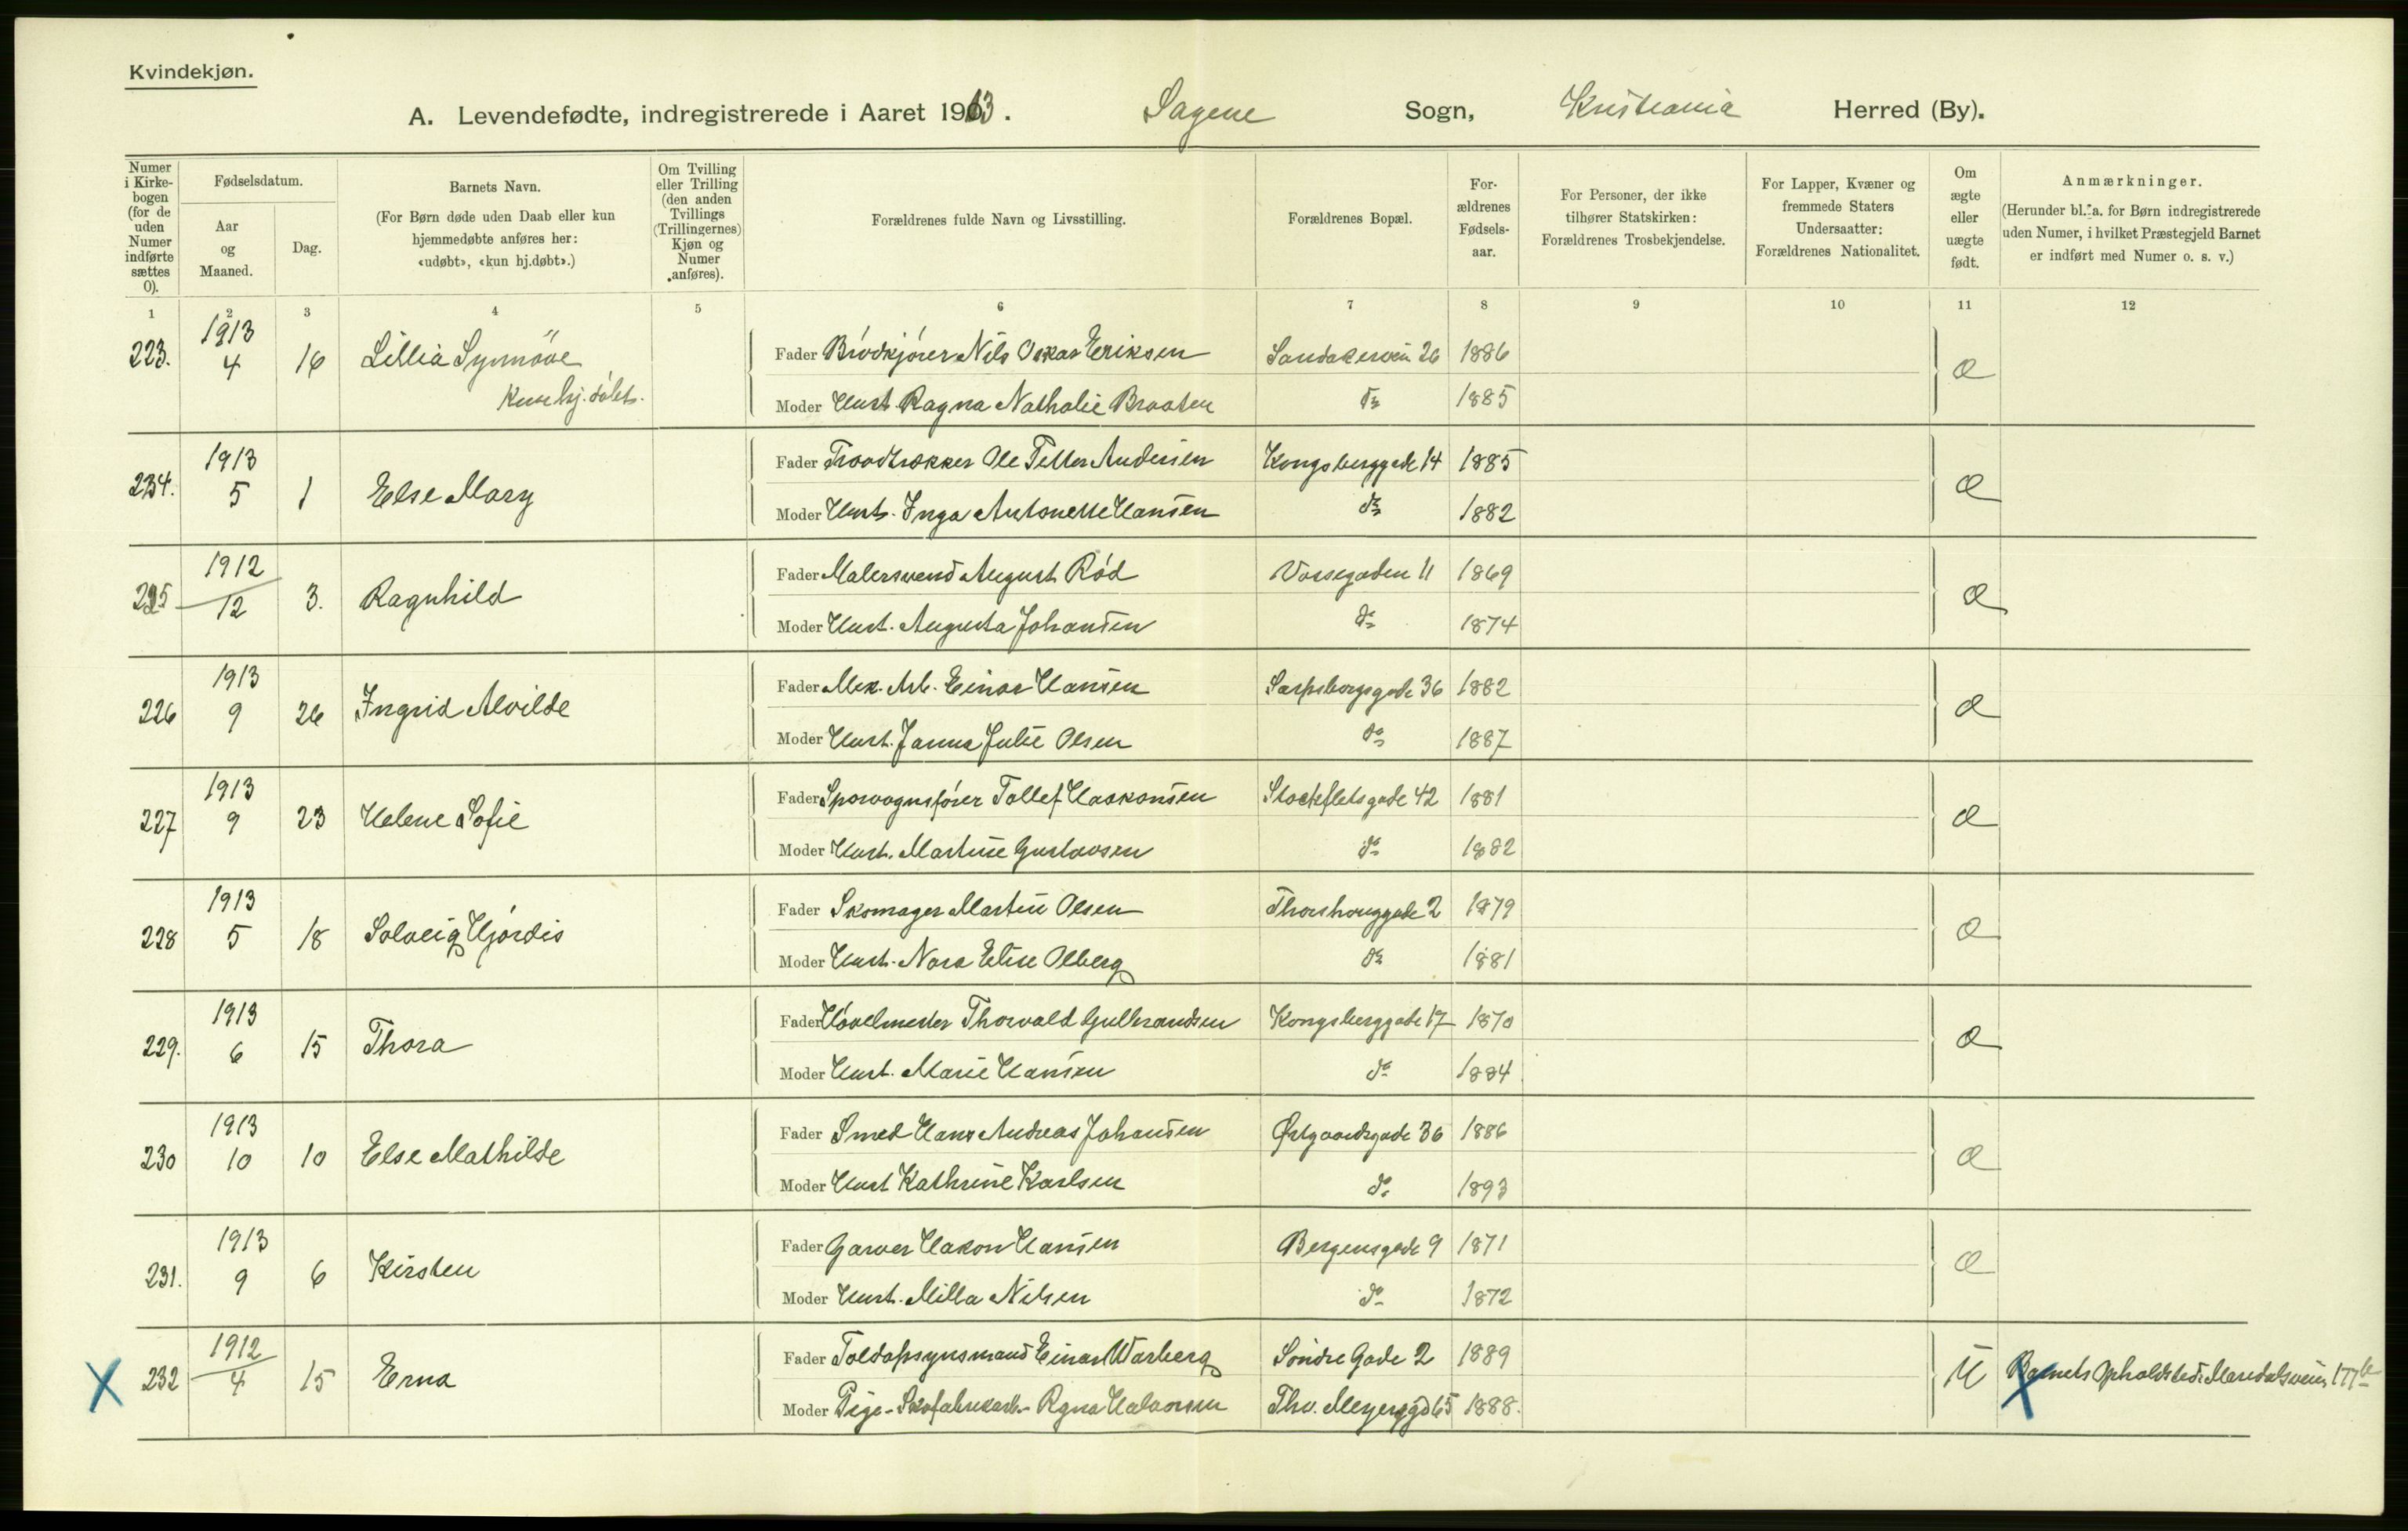 Kvindekjøn.
A. Levendefødte, indregistrerede i Aaret 1913. Sagene Sogn, Kristiania Herred (By).
Numer i Kirke-bogen (for de uden Numer indførte sættes 0).
Fødselsdatum.
Aar og Maaned.
Dag.
Barnets Navn.
(For Børn døde uden Daab eller kun hjemmedøbte anføres her: «udøbt», «kun hj.døbt».)
Om Tvilling eller Trilling (den anden Tvillings (Trillingernes) Kjøn og Numer anføres).
Forældrenes fulde Navn og Livsstilling.
Forældrenes Bopæl.
For-ældrenes Fødsels-aar.
For Personer, der ikke tilhører Statskirken: Forældrenes Trosbekjendelse.
For Lapper, Kvæner og fremmede Staters Undersaatter: Forældrenes Nationalitet.
Om ægte eller uægte født.
Anmærkninger.
(Herunder bl. a. for Børn indregistrerede uden Numer, i hvilket Præstegjeld Barnet er indført med Numer o. s. v.)
1 2 3 4 5 6 7 8 9 10 11 12
223. 1913 4 16 Lillia Synnöve Kun hj. döbt.
Fader Brödkjører Nils Oskar Eriksen Sandakerveien 26 1886 Æ
Moder Hust. Ragna Nathalie Braaten do 1885
224. 1913 5 1 Else Mary
Fader Traadtrækker Ole Petter Andersen Kongsberggade 14 1885 Æ
Moder Hust. Inga Antonette Hansen do 1882
225 1912 12 3. Ragnhild
Fader Malersvend August Rød Vossegaden 11 1869 Æ
Moder Hust. Augusta Johansen do 1874
226 1913 9 26 Ingrid Alvilde
Fader Mek. Arb. Einar Hansen Sarpsborgsgade 36 1882 Æ
Moder Hust. Janna Julie Olsen do 1887
227 1913 9 23 Helene Sofie
Fader Sporvognsfører Tollef Haakonsen Stockfletsgade 42 1881 Æ
Moder Hust. Martine Gustavsen do 1882
228 1913 5 18 Solveig Hjördis
Fader Skomager Martin Olsen Thorshouggade 2 1879 Æ
Moder Hust. Nora Elise Olberg do 1881
229. 1913 6 15 Thora
Fader Høvelmester Thorvald Gulbrandsen Kongsberggade 17 1870 Æ
Moder Hust. Marie Hansen do 1884
230 1913 10 10 Else Mathilde
Fader Smed Hans Andreas Johansen Østgaardsgade 36 1886 Æ
Moder Hust Kathrine Karlsen do 1893
231. 1913 9 6 Kirsten
Fader Garver Hakon Hansen Bergensgade 9 1871 Æ
Moder Hust. Milla Nilsen do 1872
X 232 1912 4 15 Erna
Fader Toldopsynsmand Einar Warberg Söndre Gade 2 1889 U Barnets Opholdssted: Maridalsveien 177
Moder Pige - Skofabrikarb. Thv. Meyersgd 65 1888.